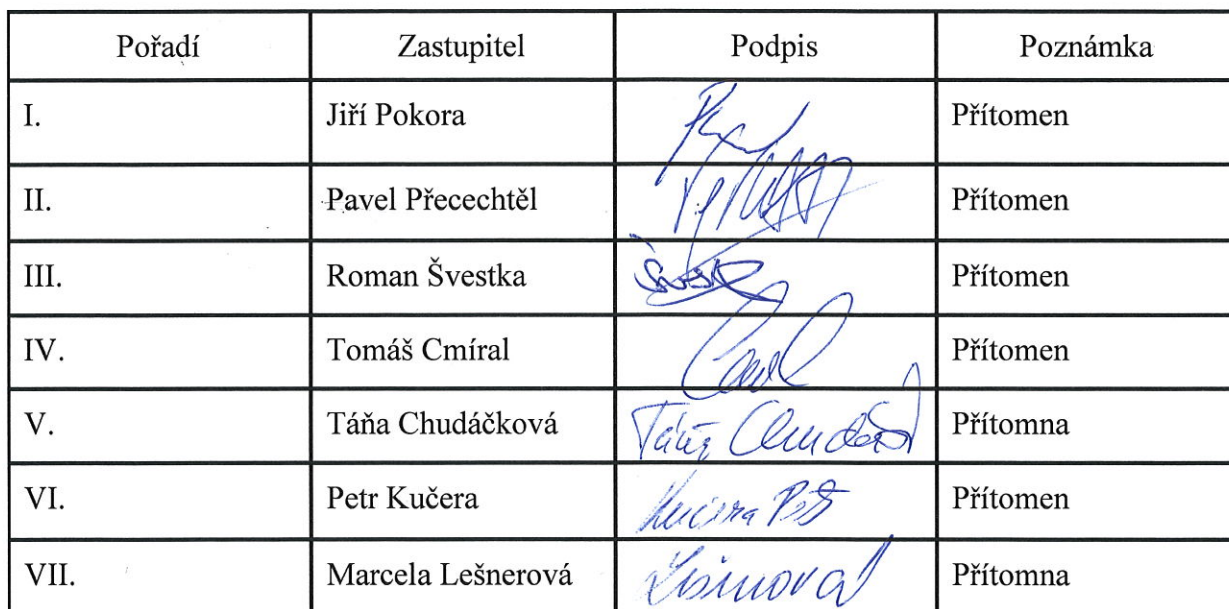 Pořadí Zastupitel Podpis Poznámka
I. Jiří Pokora Přítomen
II. Pavel Přecechtěl Přítomen
III. Roman Švestka Přítomen
IV. Tomáš Cmíral Přítomen
V. Táňa Chudáčková Přítomna
VI. Petr Kučera Kučera Petr Přítomen
VII. Marcela Lešnerová Přítomna